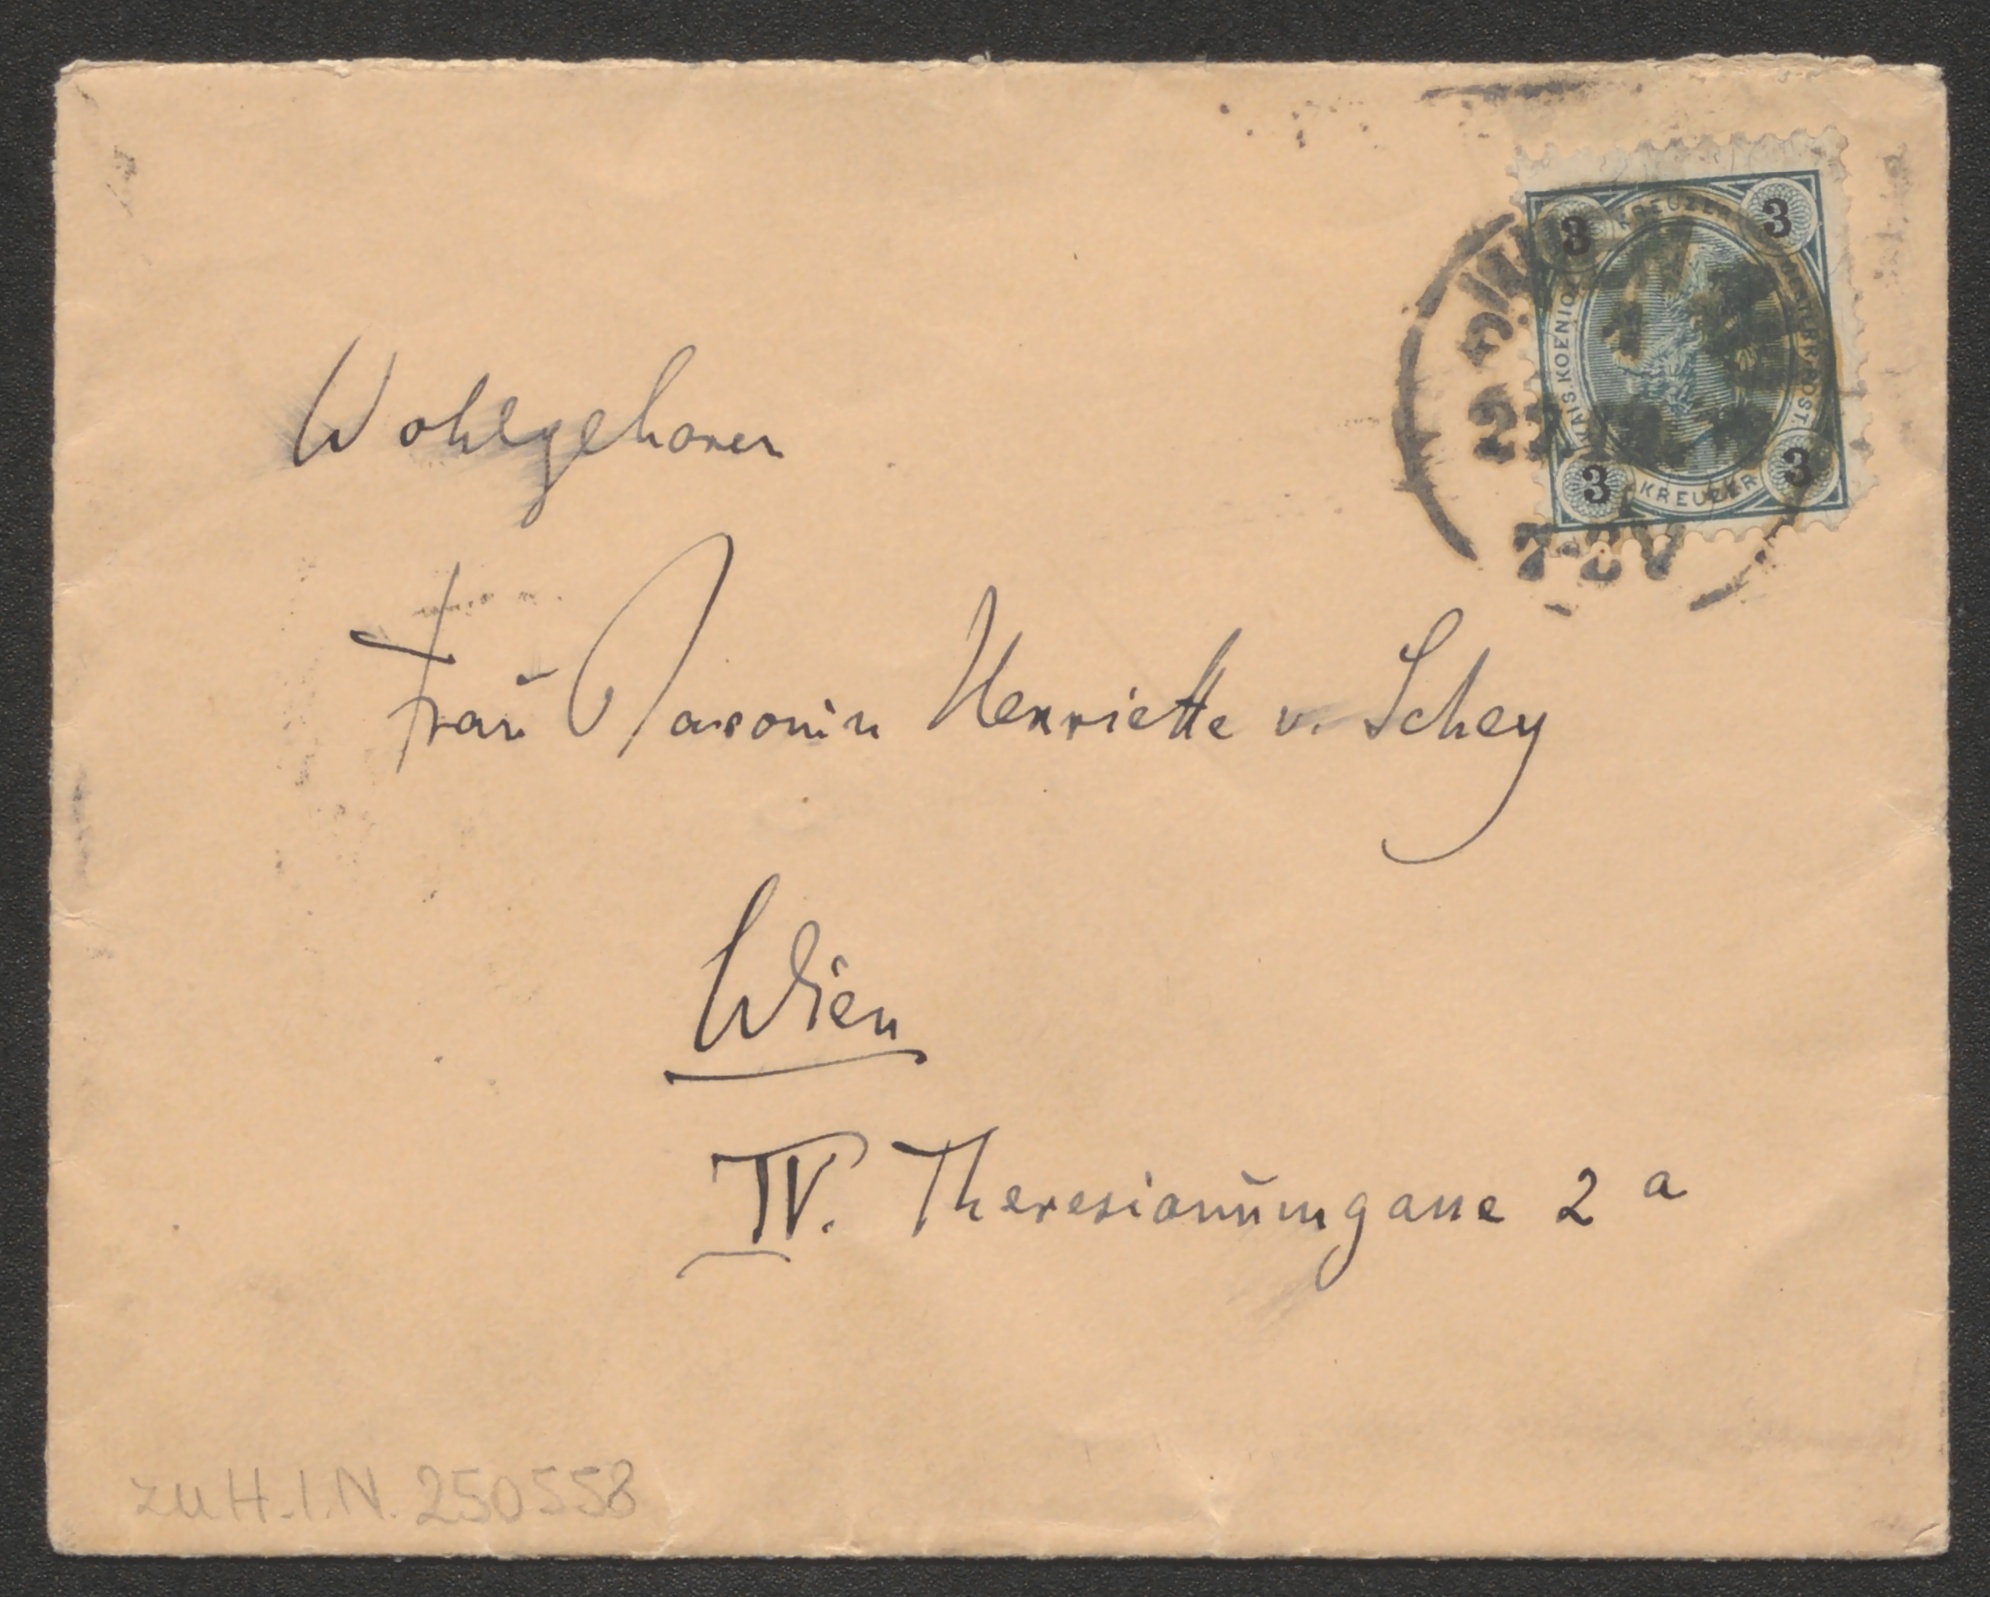 3 KREUZER 3
KAIS. KOENIGL.
3 KREUZER 3
7-8V
Wohlgeboren
Frau Baronin Henriette v. Schey
Wien
IV. Theresianumgasse 2 a
zu H.I.N. 250558